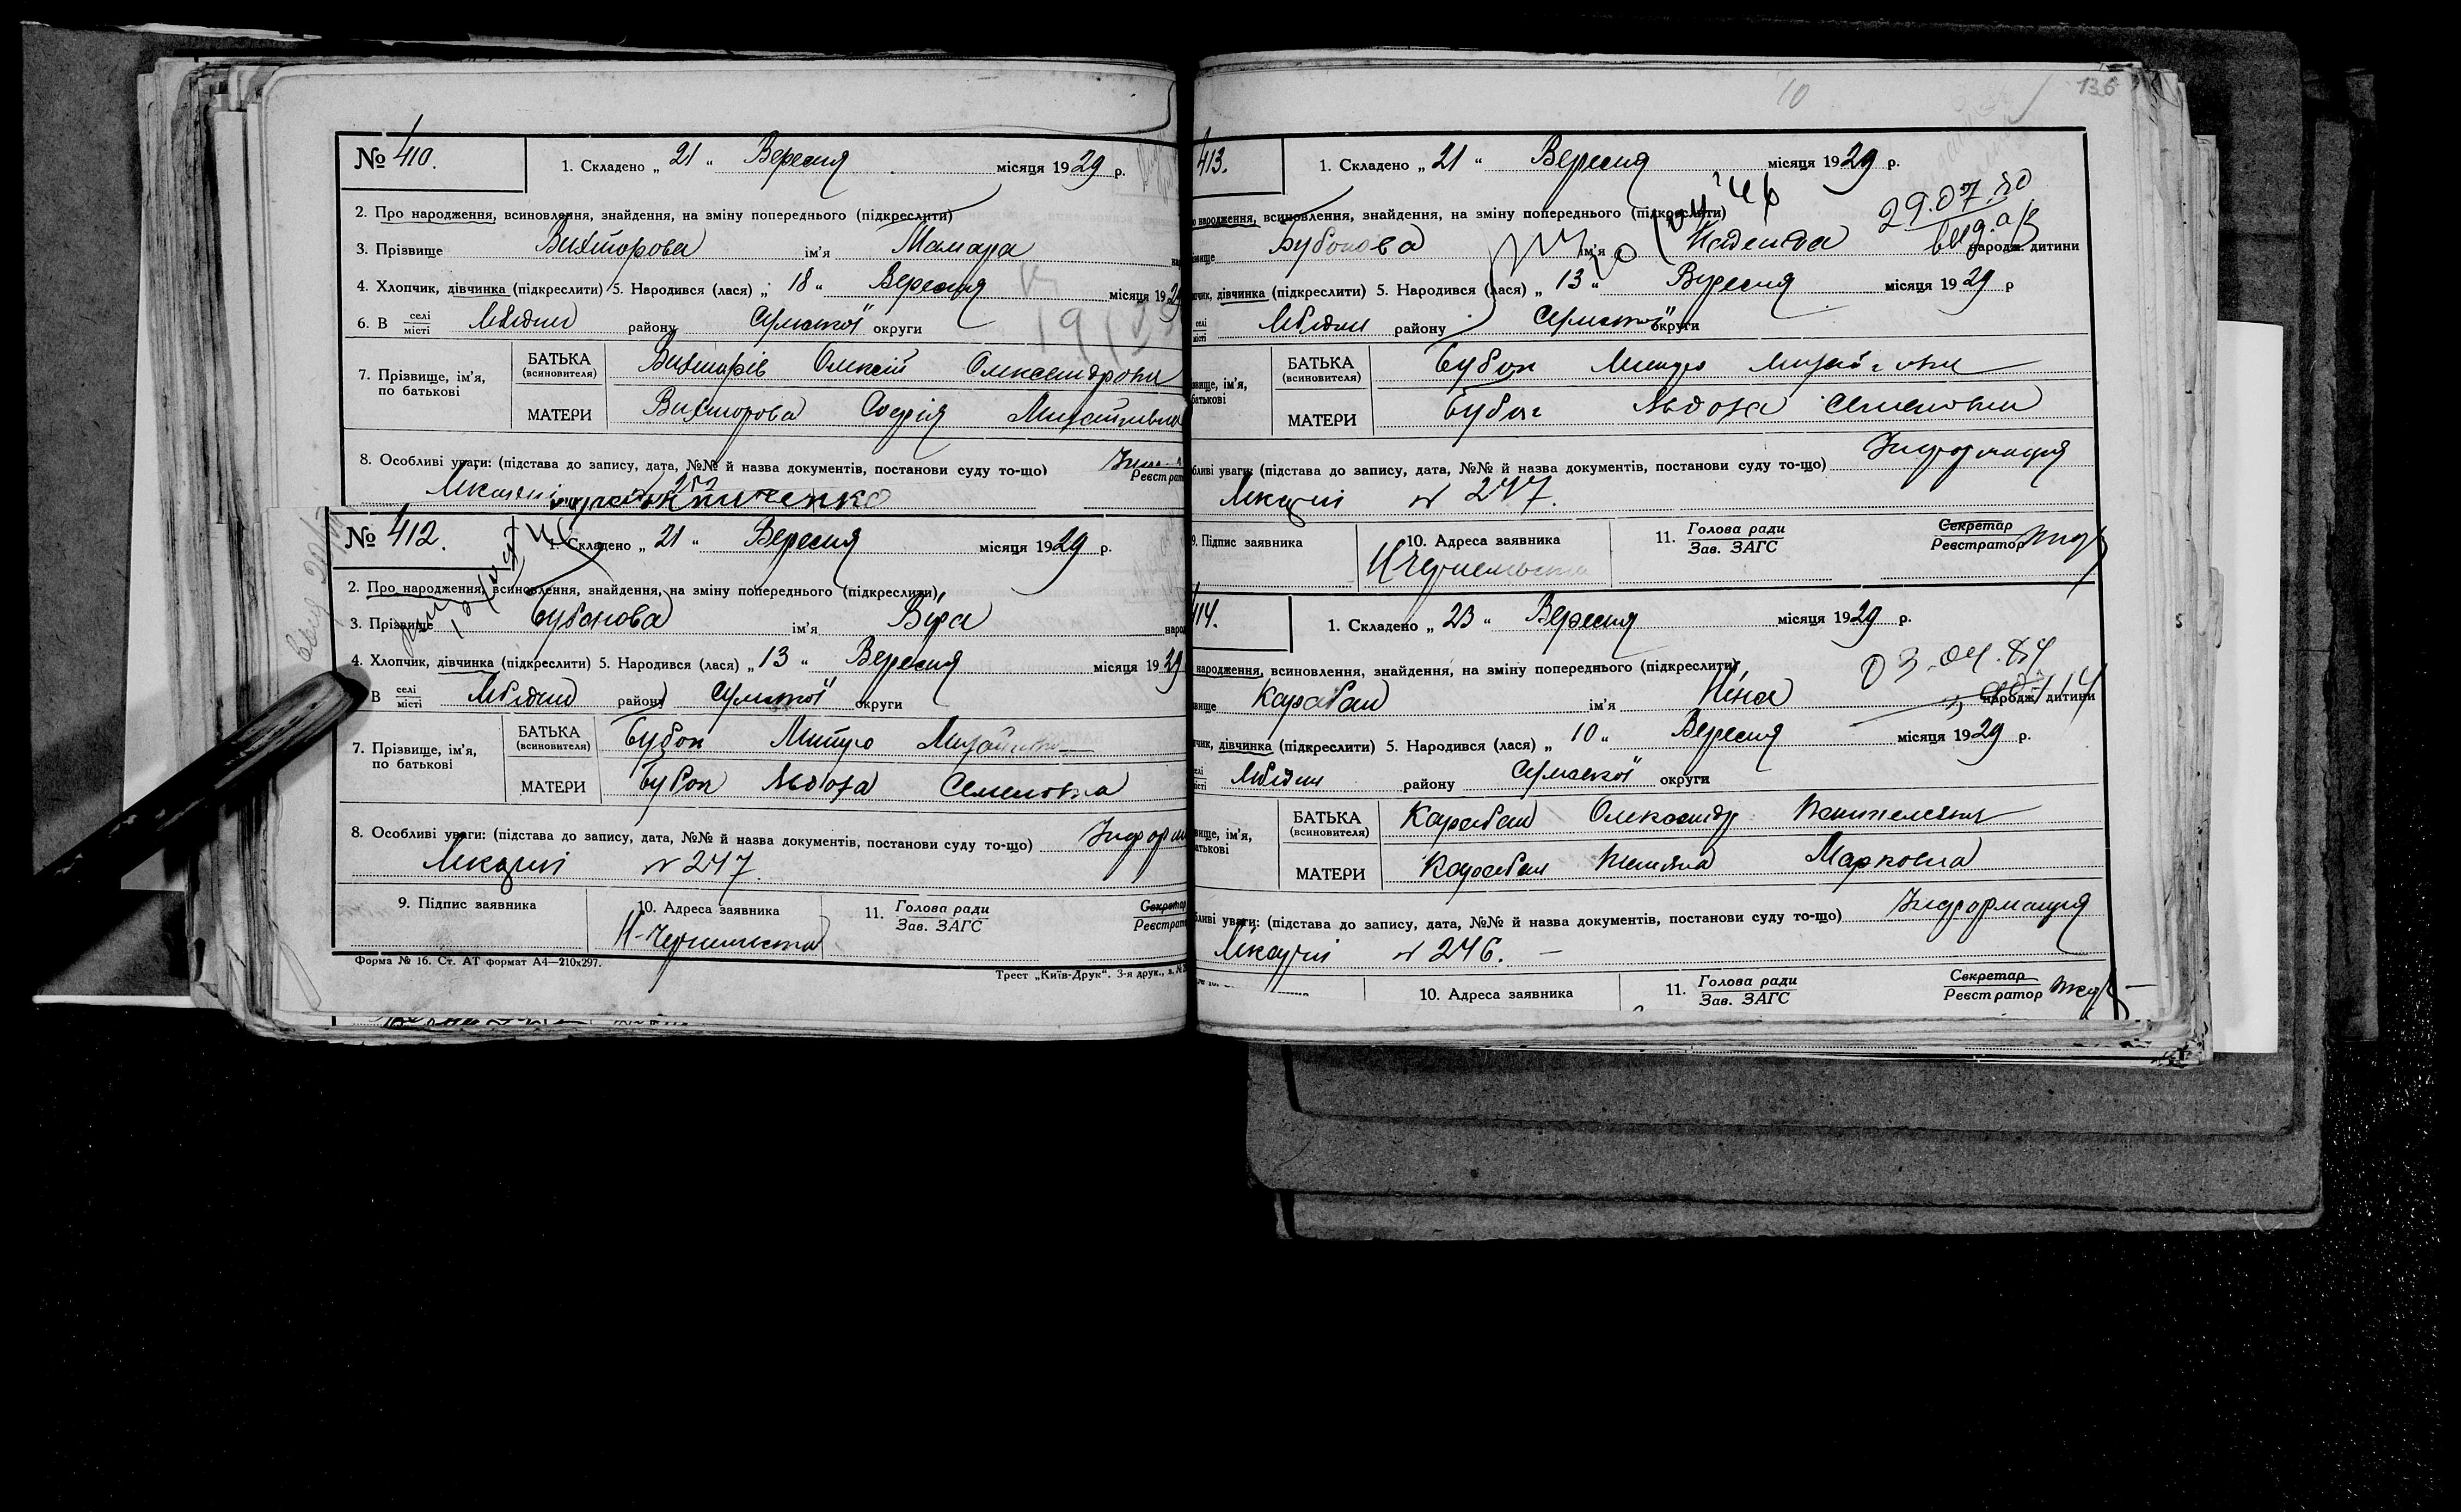 № 410. 1. Складено „ 21 “ Вересня місяця 1929 р.
2. Про народження, всиновлення, знайдення, на зміну попереднього (підкреслити)
3. Прізвище Вихторова ім'я Тамара
4. Хлопчик, дівчинка (підкреслити) 5. Народився (лася) „ 18 “ Вересня місяця 1929
6. В селі місті Лебедин району Сумської округи
7. Прізвище, ім'я, по батькові
БАТЬКА (всиновителя) Вихторів Олексій Олександрович
МАТЕРИ Вихторова Софія Михайлівна
8. Особливі уваги: (підстава до запису, дата, №№ й назва документів, постанови суду то-що)
Реєстрат
№ 412. 1. Складено „ 21 “ Вересня місяця 1929 р.
2. Про народження, всиновлення, знайдення, на зміну попереднього (підкреслити)
3. Прізвище Бубонова ім'я Віра народ
4. Хлопчик, дівчинка (підкреслити) 5. Народився (лася) „ 13 “ Вересня місяця 1929
В селі місті Лебедин району Сумської округи
7. Прізвище, ім'я, по батькові
БАТЬКА (всиновителя) Бубон Митро Михайлович
МАТЕРИ Бубон Явдоха Семеновна
8. Особливі уваги: (підстава до запису, дата, №№ й назва документів, постанови суду то-що) Інформ
Лікарні № 247.
9. Підпис заявника 10. Адреса заявника 11. Голова ради Зав. ЗАГС Секретар Реєстрат
Форма № 16. Ст. АТ формат А4—210х297.
Трест „Київ-Друк“. 3-я друк., з. №
136
10
413. 1. Складено „ 21 “ Вересня місяця 1929 р.
народження, всиновлення, знайдення, на зміну попереднього (підкреслити)
29.07.80
Бубонова ім'я Надежда народж. дитини
дівчинка (підкреслити) 5. Народився (лася) „ 13 “ Вересня місяця 1929 р
селі місті Лебедин району Сумської округи
БАТЬКА (всиновителя) Бубон Митро Михайлович
МАТЕРИ Бубон Явдоха Семеновна
уваги: (підстава до запису, дата, №№ й назва документів, постанови суду то-що) Інформация
Лікарні № 247.
9. Підпис заявника 10. Адреса заявника 11. Голова ради Зав. ЗАГС Секретар Реєстратор
414. 1. Складено „ 23 “ Вересня місяця 1929 р.
народження, всиновлення, знайдення, на зміну попереднього (підкреслити)
03.04.84
Карабан ім'я Ніна народж. дитини
дівчинка (підкреслити) 5. Народився (лася) „ 10 “ Вересня місяця 1929 р.
Лебедин району Сумської округи
БАТЬКА (всиновителя) Карабан Олександр Пантелеевич
МАТЕРИ Карабан Тетяна Марковна
уваги: (підстава до запису, дата, №№ й назва документів, постанови суду то-що) Інформация
Лікарні № 246. —
10. Адреса заявника 11. Голова ради Зав. ЗАГС Секретар Реєстратор